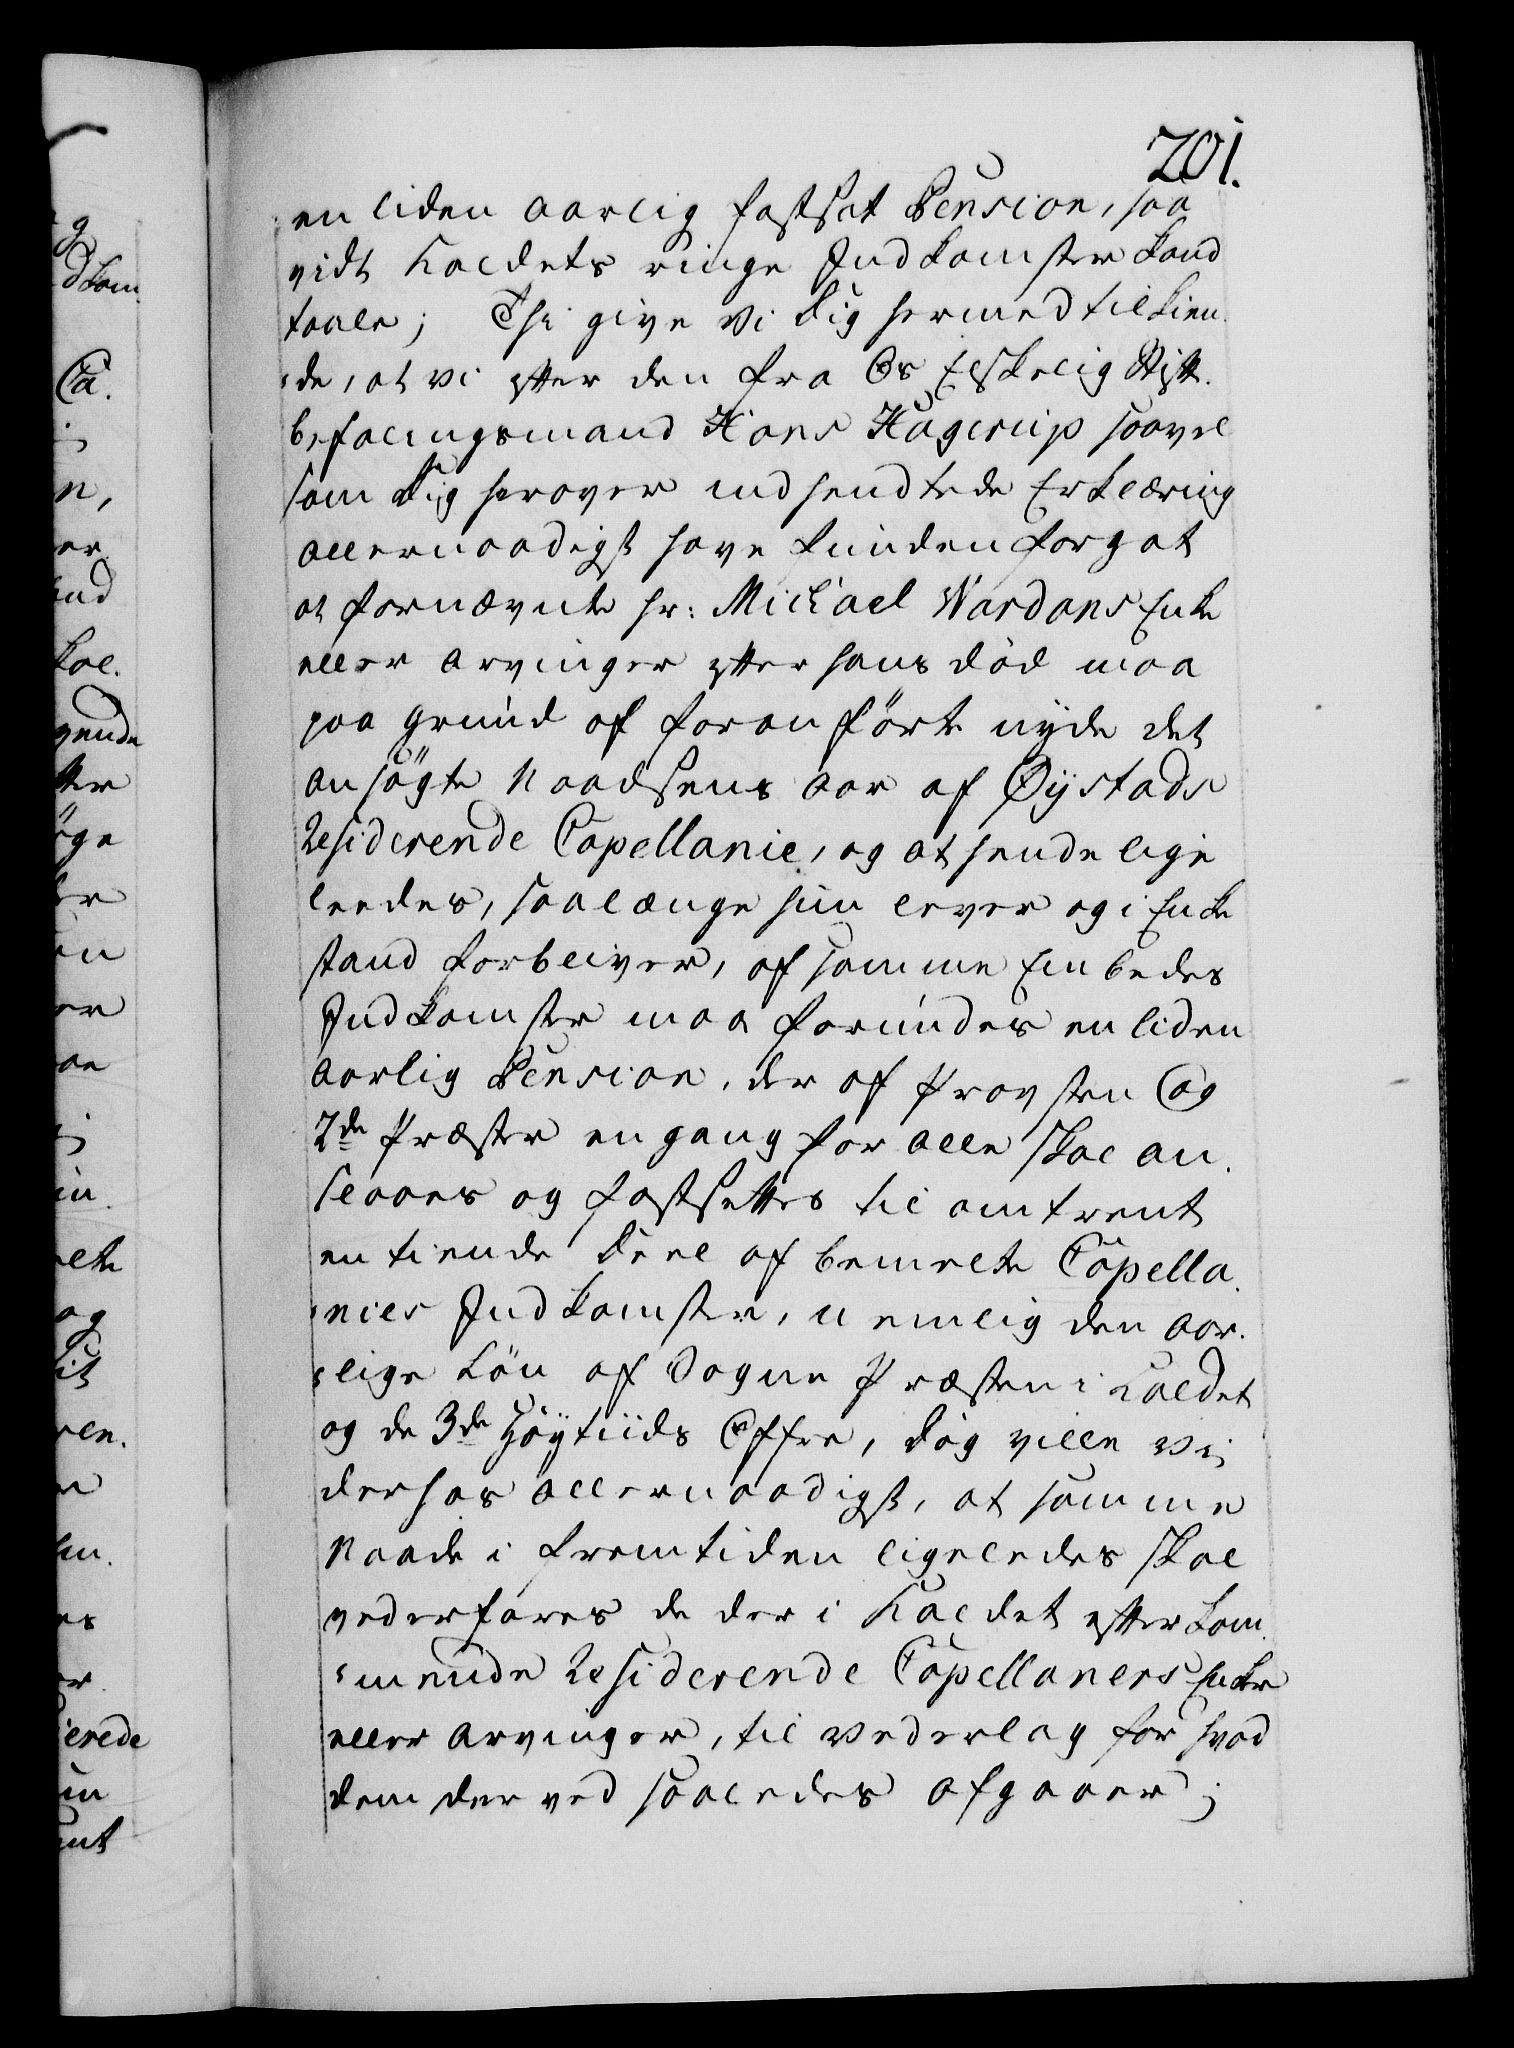 201.
en liden aarlig fastsat Pension, saa
vidt Kaldets ringe Indkomster kand
taale; Thi give Vi Dig hermed tilkien¬
¬de, at vi efter den fra Os Elskelig Stift¬
befalingsmand Hans Hagerup saavel
som Dig herover indsendtede Erklæring
allernaadigst have funden forgot
at fornævnte Hr: Michael Wardans Enke
eller Arvinger efter hans død maa
paa grund af foranførte nyde det
ansøgte Naadsens Aar af Øÿstads
Residerende Capellanie, og at hende lige
leedes, saalænge hun lever og i Enke
stand forbliver, af samme Embedes
Indkomster maa forundes en liden
aarlig Pension, der af Provsten og
2de Præster engang for alle skal an¬
slaaes og fastsettes til omtrent
en tiende Deel af bemelte Capella¬
¬nies Indkomster, nemlig den aar¬
¬lige Løn af Sogne Præsten i Kaldet
og de 3de Høÿtiids Offre, dog ville Vi
derhos allernaadigst, at samme
Naade i fremtiden ligeledes skal
vederfares de der i Kaldet efterkom¬
¬mende Residerende Capellaners Enker
eller Arvinger, til Vederlag for hvad
dem derved saaledes afgaaer;
g
dkom¬
Ca¬
n,
er
and
kal¬
gende
tter
øge
er
en
er
elte
og
it
ren¬
es
er
ierede
nt